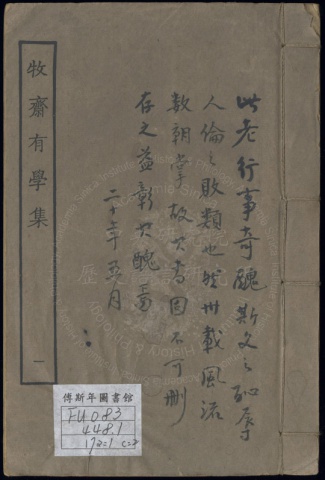 牧齋有學集
一
此老行事奇醜斯文之恥辱
人倫之敗類也然卅載風流
數朝掌故其書固不可刪
存之益彰其醜焉
二十年五月
傅斯年圖書館
FU083
448.1
172=1 c=2